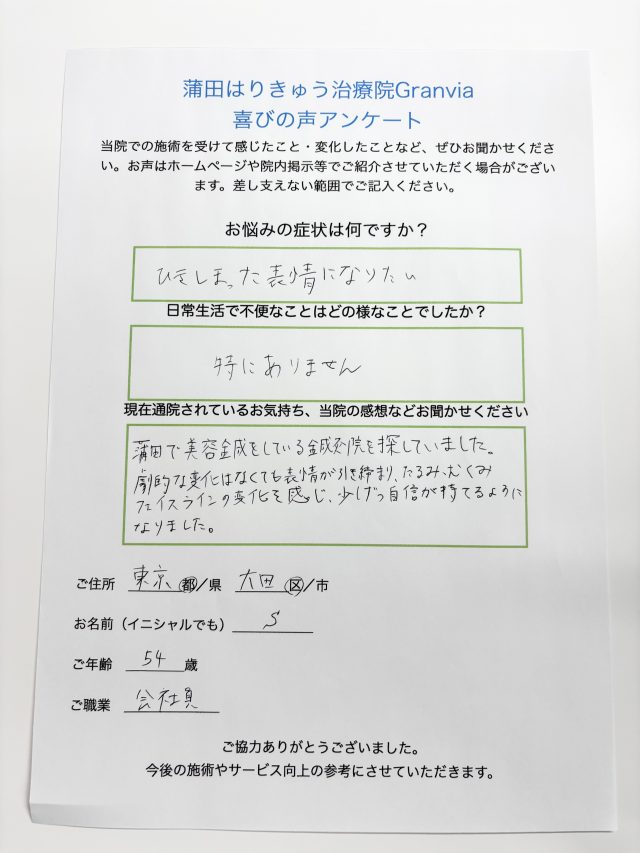 蒲田はりきゅう治療院Granvia
喜びの声アンケート
当院での施術を受けて感じたこと・変化したことなど、ぜひお聞かせくださ
い。お声はホームページや院内掲示等でご紹介させていただく場合がござい
ます。差し支えない範囲でご記入ください。
お悩みの症状は何ですか？
ひきしまった表情になりたい
日常生活で不便なことはどの様なことでしたか？
特にありません
現在通院されているお気持ち、当院の感想などお聞かせください
蒲田で美容鍼をしている鍼灸院を探していました。
劇的な変化はなくても表情が引き締まり、たるみ、むくみ
フェイスラインの変化を感じ、少しずつ自信が持てるように
なりました。
ご住所 東京 都/県 大田 区/市
お名前（イニシャルでも） S
ご年齢 54 歳
ご職業 会社員
ご協力ありがとうございました。
今後の施術やサービス向上の参考にさせていただきます。